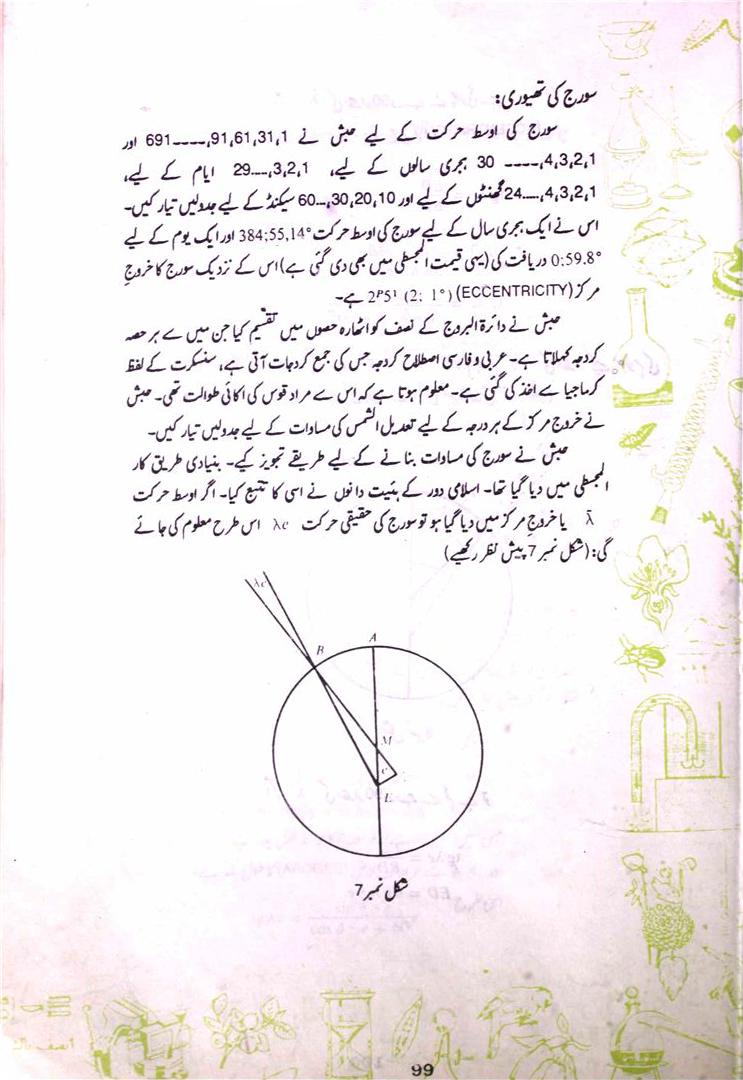 سورج کی تھیوری:
سورج کی اوسط حرکت کے لیے حبش نے 1،31،61،91،----691 اور
1،2،3،4،---- 30 ہجری سالوں کے لیے، 1،2،3،----29 ایام کے لیے،
1،2،3،4،----24 گھنٹوں کے لیے اور 10،20،30،...60 سیکنڈ کے لیے جدولیں تیار کیں۔
اس نے ایک ہجری سال کے لیے سورج کی اوسط حرکت 384;55,14° اور ایک یوم کے لیے
0;59.8° دریافت کی (یہی قیمت المجسطی میں بھی دی گئی ہے) اس کے نزدیک سورج کا خروجِ
مرکز (ECCENTRICITY) (2; 1°) 2ᴾ5¹ ہے۔
حبش نے دائرۃ البروج کے نصف کو اٹھارہ حصوں میں تقسیم کیا جن میں سے ہر حصہ
کردجہ کہلاتا ہے۔ عربی و فارسی اصطلاح کردجہ جس کی جمع کردجات آتی ہے، سنسکرت کے لفظ
کرماجیا سے اخذ کی گئی ہے۔ معلوم ہوتا ہے کہ اس سے مراد قوس کی اکائی طوالت تھی۔ حبش
نے خروج مرکز کے ہر درجہ کے لیے تعدیل الشمس کی مساوات کے لیے جدولیں تیار کیں۔
حبش نے سورج کی مساوات بنانے کے لیے طریقے تجویز کیے۔ بنیادی طریق کار
المجسطی میں دیا گیا تھا۔ اسلامی دور کے ہئیت دانوں نے اسی کا تتبع کیا۔ اگر اوسط حرکت
λ̄ یا خروجِ مرکز میں دیا گیا ہو تو سورج کی حقیقی حرکت λe اس طرح معلوم کی جائے
گی: (شکل نمبر 7 پیش نظر رکھیے)
λe
B
A
M
e
E
شکل نمبر 7
99